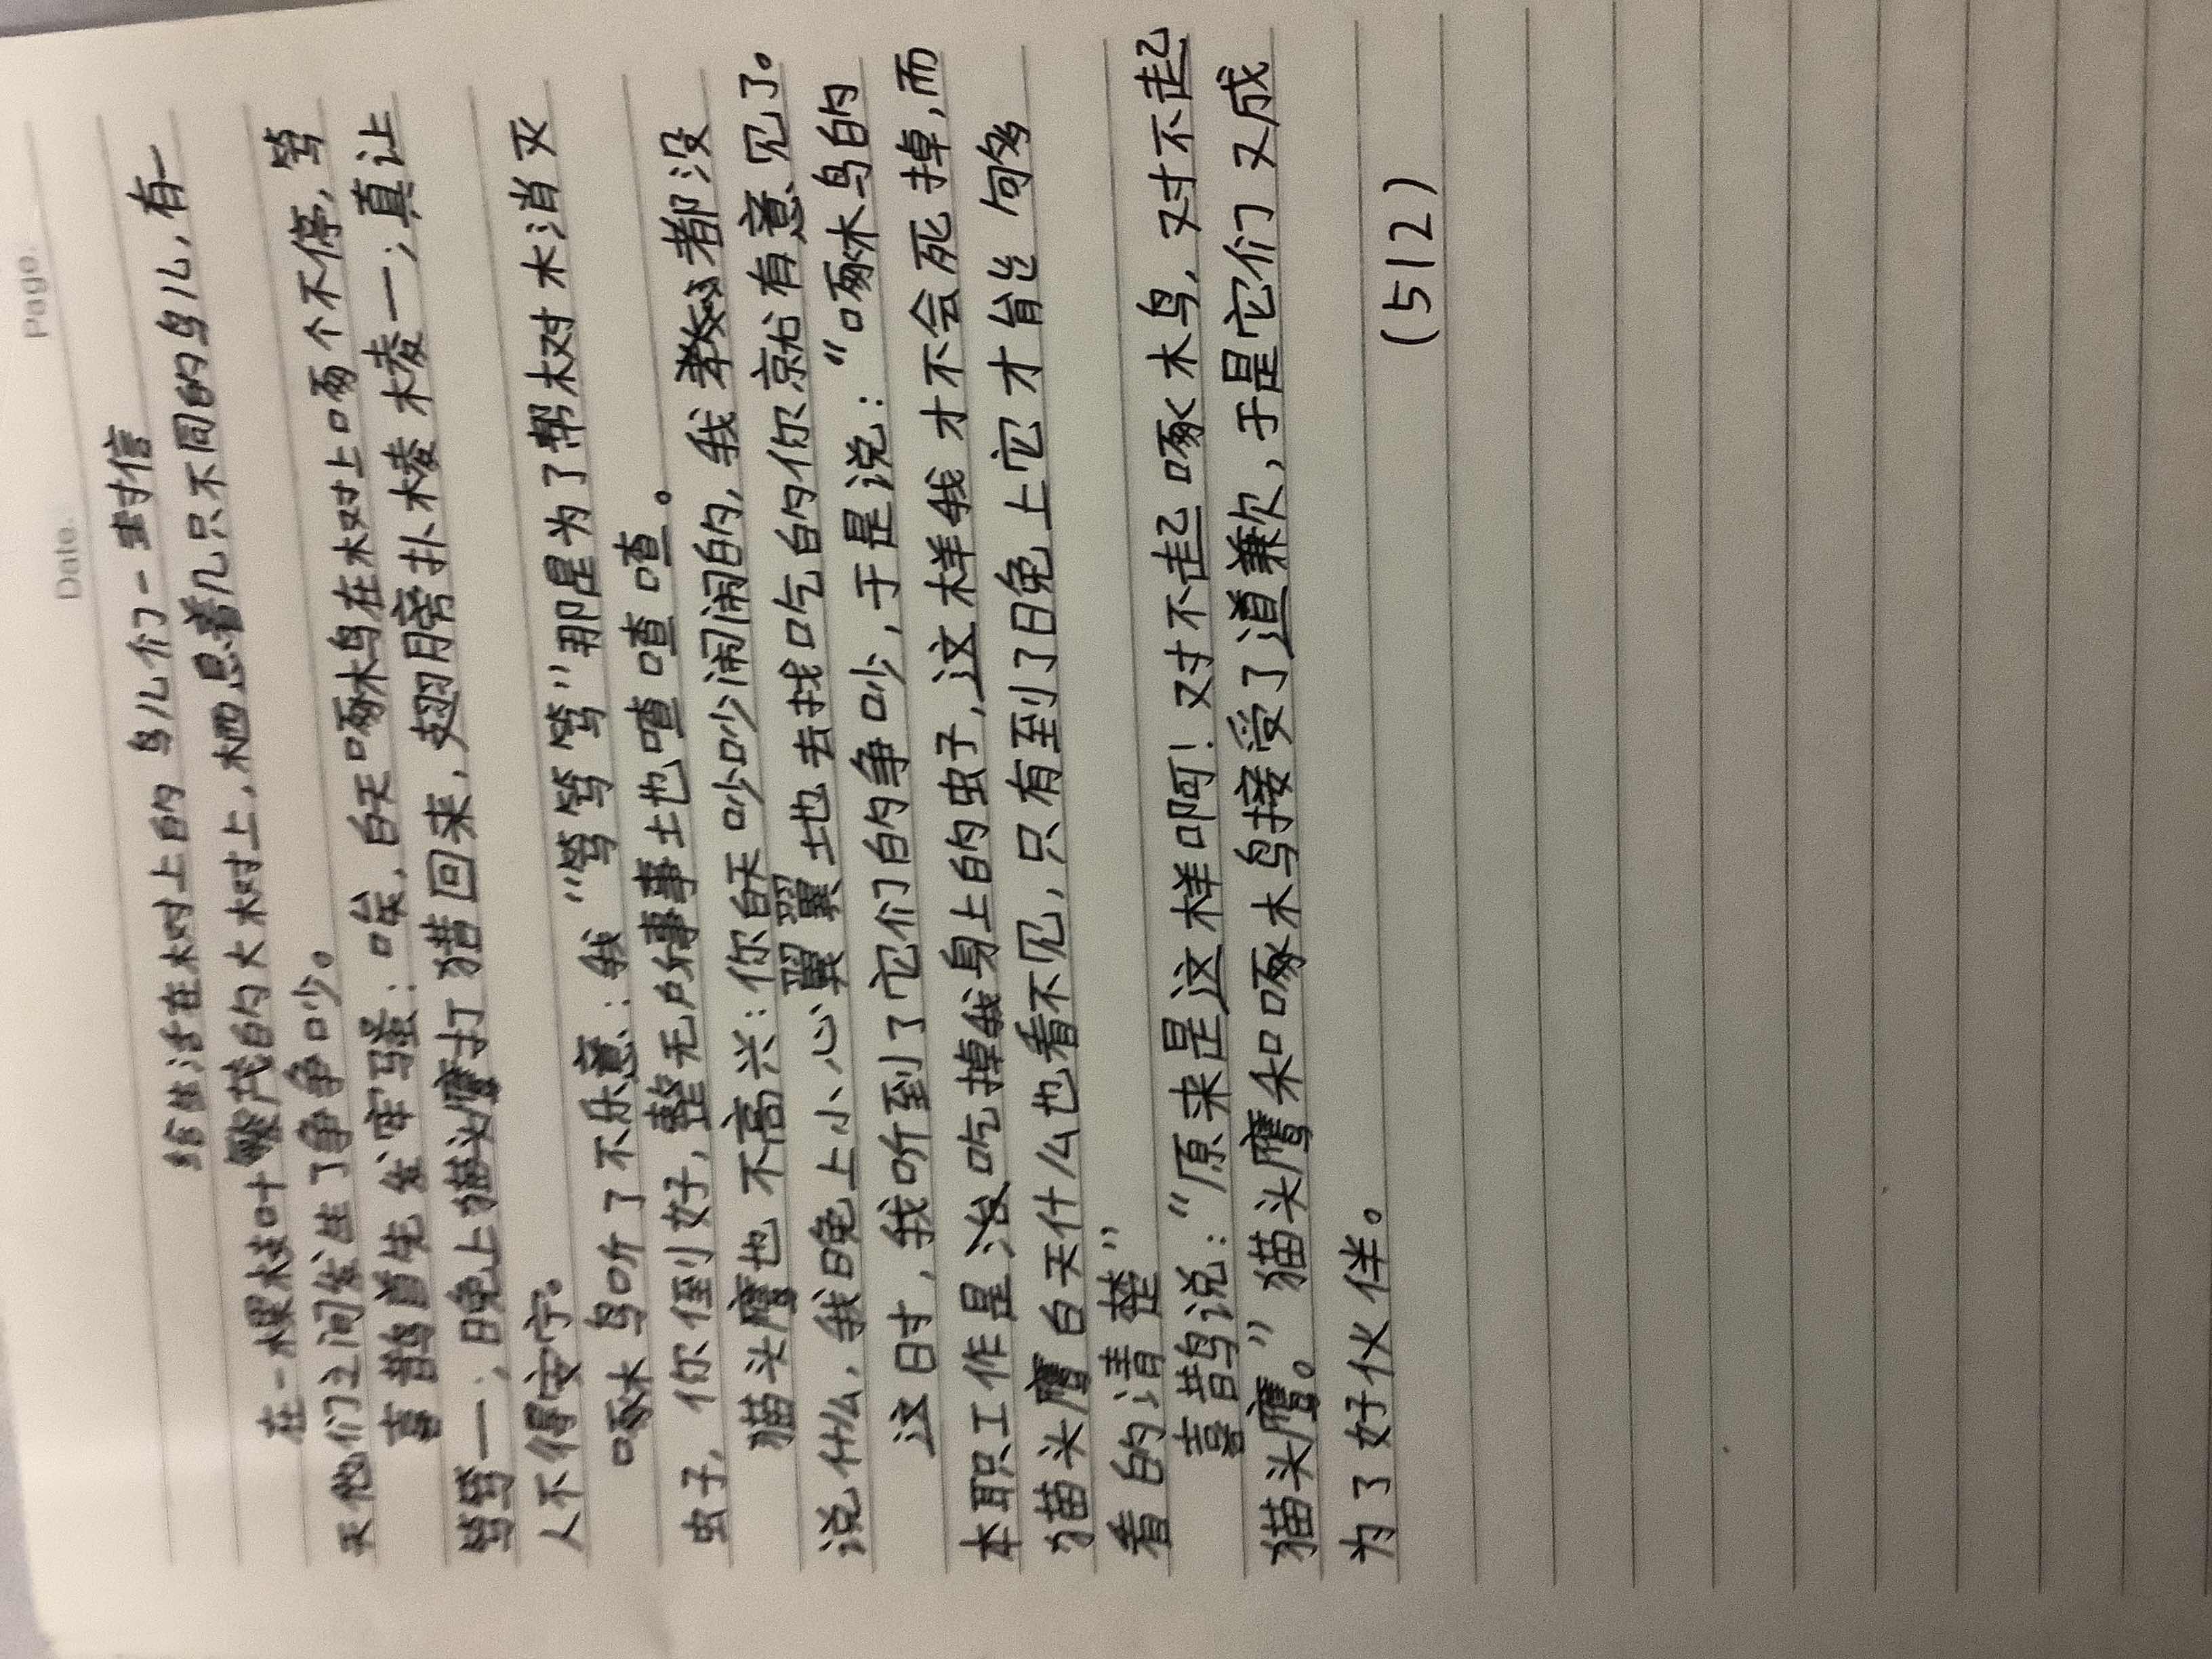 Date. Page.
给生活在树上的鸟儿们一封信
在一棵枝叶繁茂的大树上，栖息着几只不同的鸟儿，有一
天他们之间发生了争争吵。
喜鹊首先发牢骚：唉，白天啄木鸟在树上啄个不停，笃
笃笃一；晚上猫头鹰打猎回来，翅膀扑棱棱一；真让
人不得安宁。
啄木鸟听了不乐意：我“笃笃笃”那是为了帮树木消灭
虫子，你倒好，整无所事事土也喳喳喳喳。
猫头鹰也不高兴：你白天吵吵闹闹的，我都没
说什么，我晚上小心翼翼地去找吃的你就有意见了。
这时，我听到了它们的争吵，于是说：“啄木鸟的
本职工作是治吃掉我身上的虫子，这样我才不会死掉，而
猫头鹰白天什么也看不见，只有到了晚上它才能够
看的清楚”
喜鹊说：“原来是这样啊！对不起啄木鸟，对不起
猫头鹰。”猫头鹰和啄木鸟接受了道歉，于是它们又成
为了好伙伴。
(512)